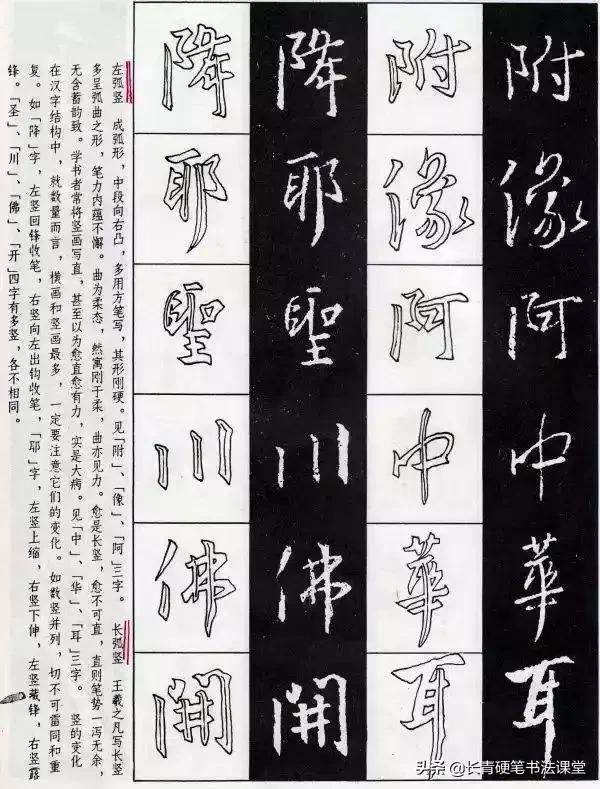 附像阿中華耳
附像阿中華耳
降耶聖川佛開
降耶聖川佛開
左弧竖　成弧形，中段向右凸，多用方笔写，其形刚硬。见「附」、「像」、「阿」三字。　长弧竖　王羲之凡写长竖
多呈弧曲之形，笔力内蕴不懈。曲为柔态，然寓刚于柔，曲亦见力。愈是长竖，愈不可直，直则笔势一泻无余，
无含蓄韵致。学书者常将竖画写直，甚至以为愈直愈有力，实是大病。见「中」、「华」、「耳」三字。　竖的变化
在汉字结构中，就数量而言，横画和竖画最多，一定要注意它们的变化。如数竖并列，切不可雷同和重
复。如「降」字，左竖回锋收笔，右竖向左出钩收笔，「耶」字，左竖上缩，右竖下伸，左竖藏锋，右竖露
锋。「圣」、「川」、「佛」、「开」四字有多竖，各不相同。
头条 @长青硬笔书法课堂